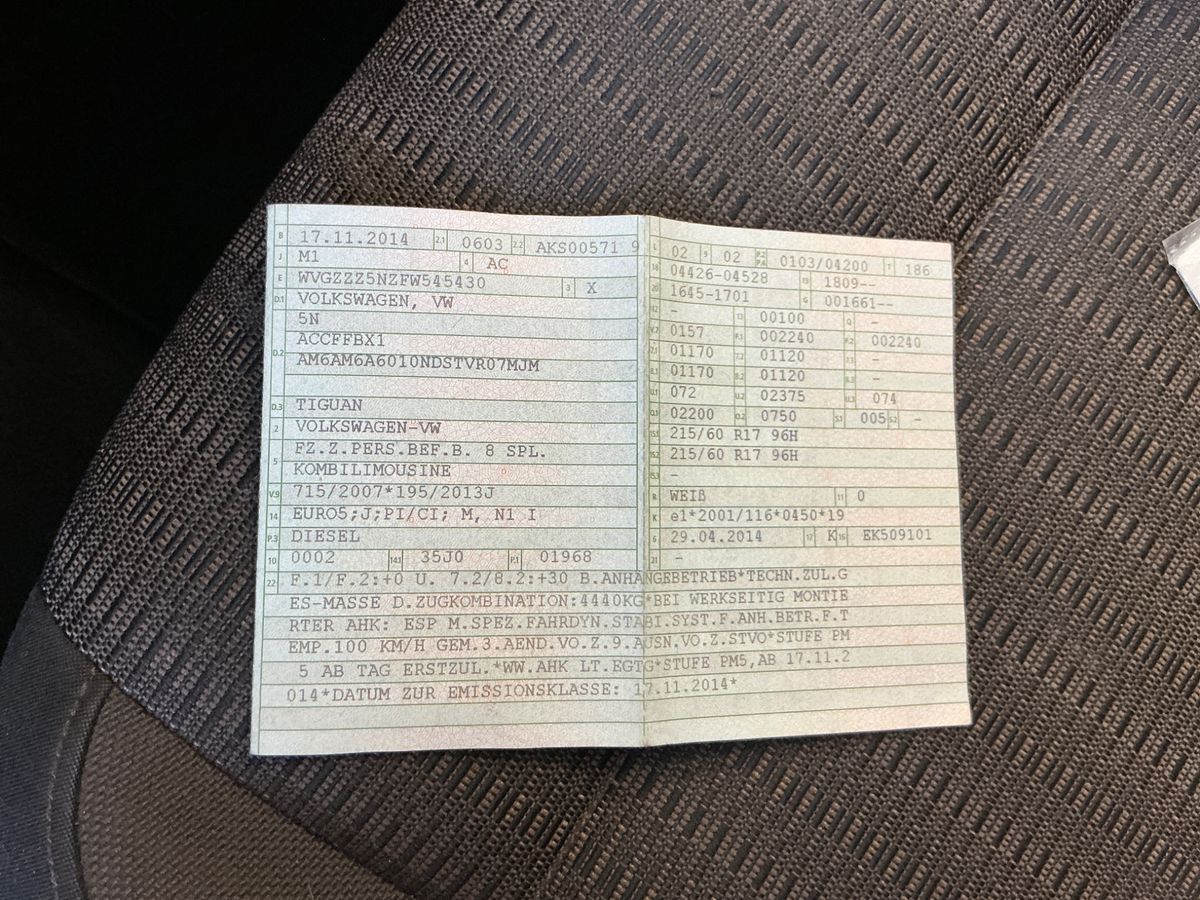 B 17.11.2014 2.1 0603 2.2 AKS00571 9
J M1 4 AC
E WVGZZZ5NZFW545430 3 X
D.1 VOLKSWAGEN, VW
5N
D.2 ACCFFBX1
AM6AM6A6010NDSTVR07MJM
D.3 TIGUAN
2 VOLKSWAGEN-VW
5 FZ.Z.PERS.BEF.B. 8 SPL.
KOMBILIMOUSINE
V.9 715/2007*195/2013J
14 EURO5;J;PI/CI; M, N1 I
P.3 DIESEL
10 0002 14.1 35J0 P.1 01968
L 02 9 02 P.2 P.4 0103/04200 T 186
18 04426-04528 19 1809--
20 1645-1701 G 001661--
12 - 13 00100 Q -
V.7 0157 F.1 002240 F.2 002240
7.1 01170 7.2 01120 7.3 -
8.1 01170 8.2 01120 8.3 -
U.1 072 U.2 02375 U.3 074
O.1 02200 O.2 0750 S.1 005 S.2 -
15.1 215/60 R17 96H
15.2 215/60 R17 96H
15.3 -
R WEIß 11 0
K e1*2001/116*0450*19
6 29.04.2014 17 K 16 EK509101
21 -
22 F.1/F.2:+0 U. 7.2/8.2:+30 B.ANHÄNGEBETRIEB*TECHN.ZUL.G
ES-MASSE D.ZUGKOMBINATION:4440KG*BEI WERKSEITIG MONTIE
RTER AHK: ESP M.SPEZ.FAHRDYN.STABI.SYST.F.ANH.BETR.F.T
EMP.100 KM/H GEM.3.AEND.VO.Z.9.AUSN.VO.Z.STVO*STUFE PM
5 AB TAG ERSTZUL.*WW.AHK LT.EGTG*STUFE PM5,AB 17.11.2
014*DATUM ZUR EMISSIONSKLASSE: 17.11.2014*